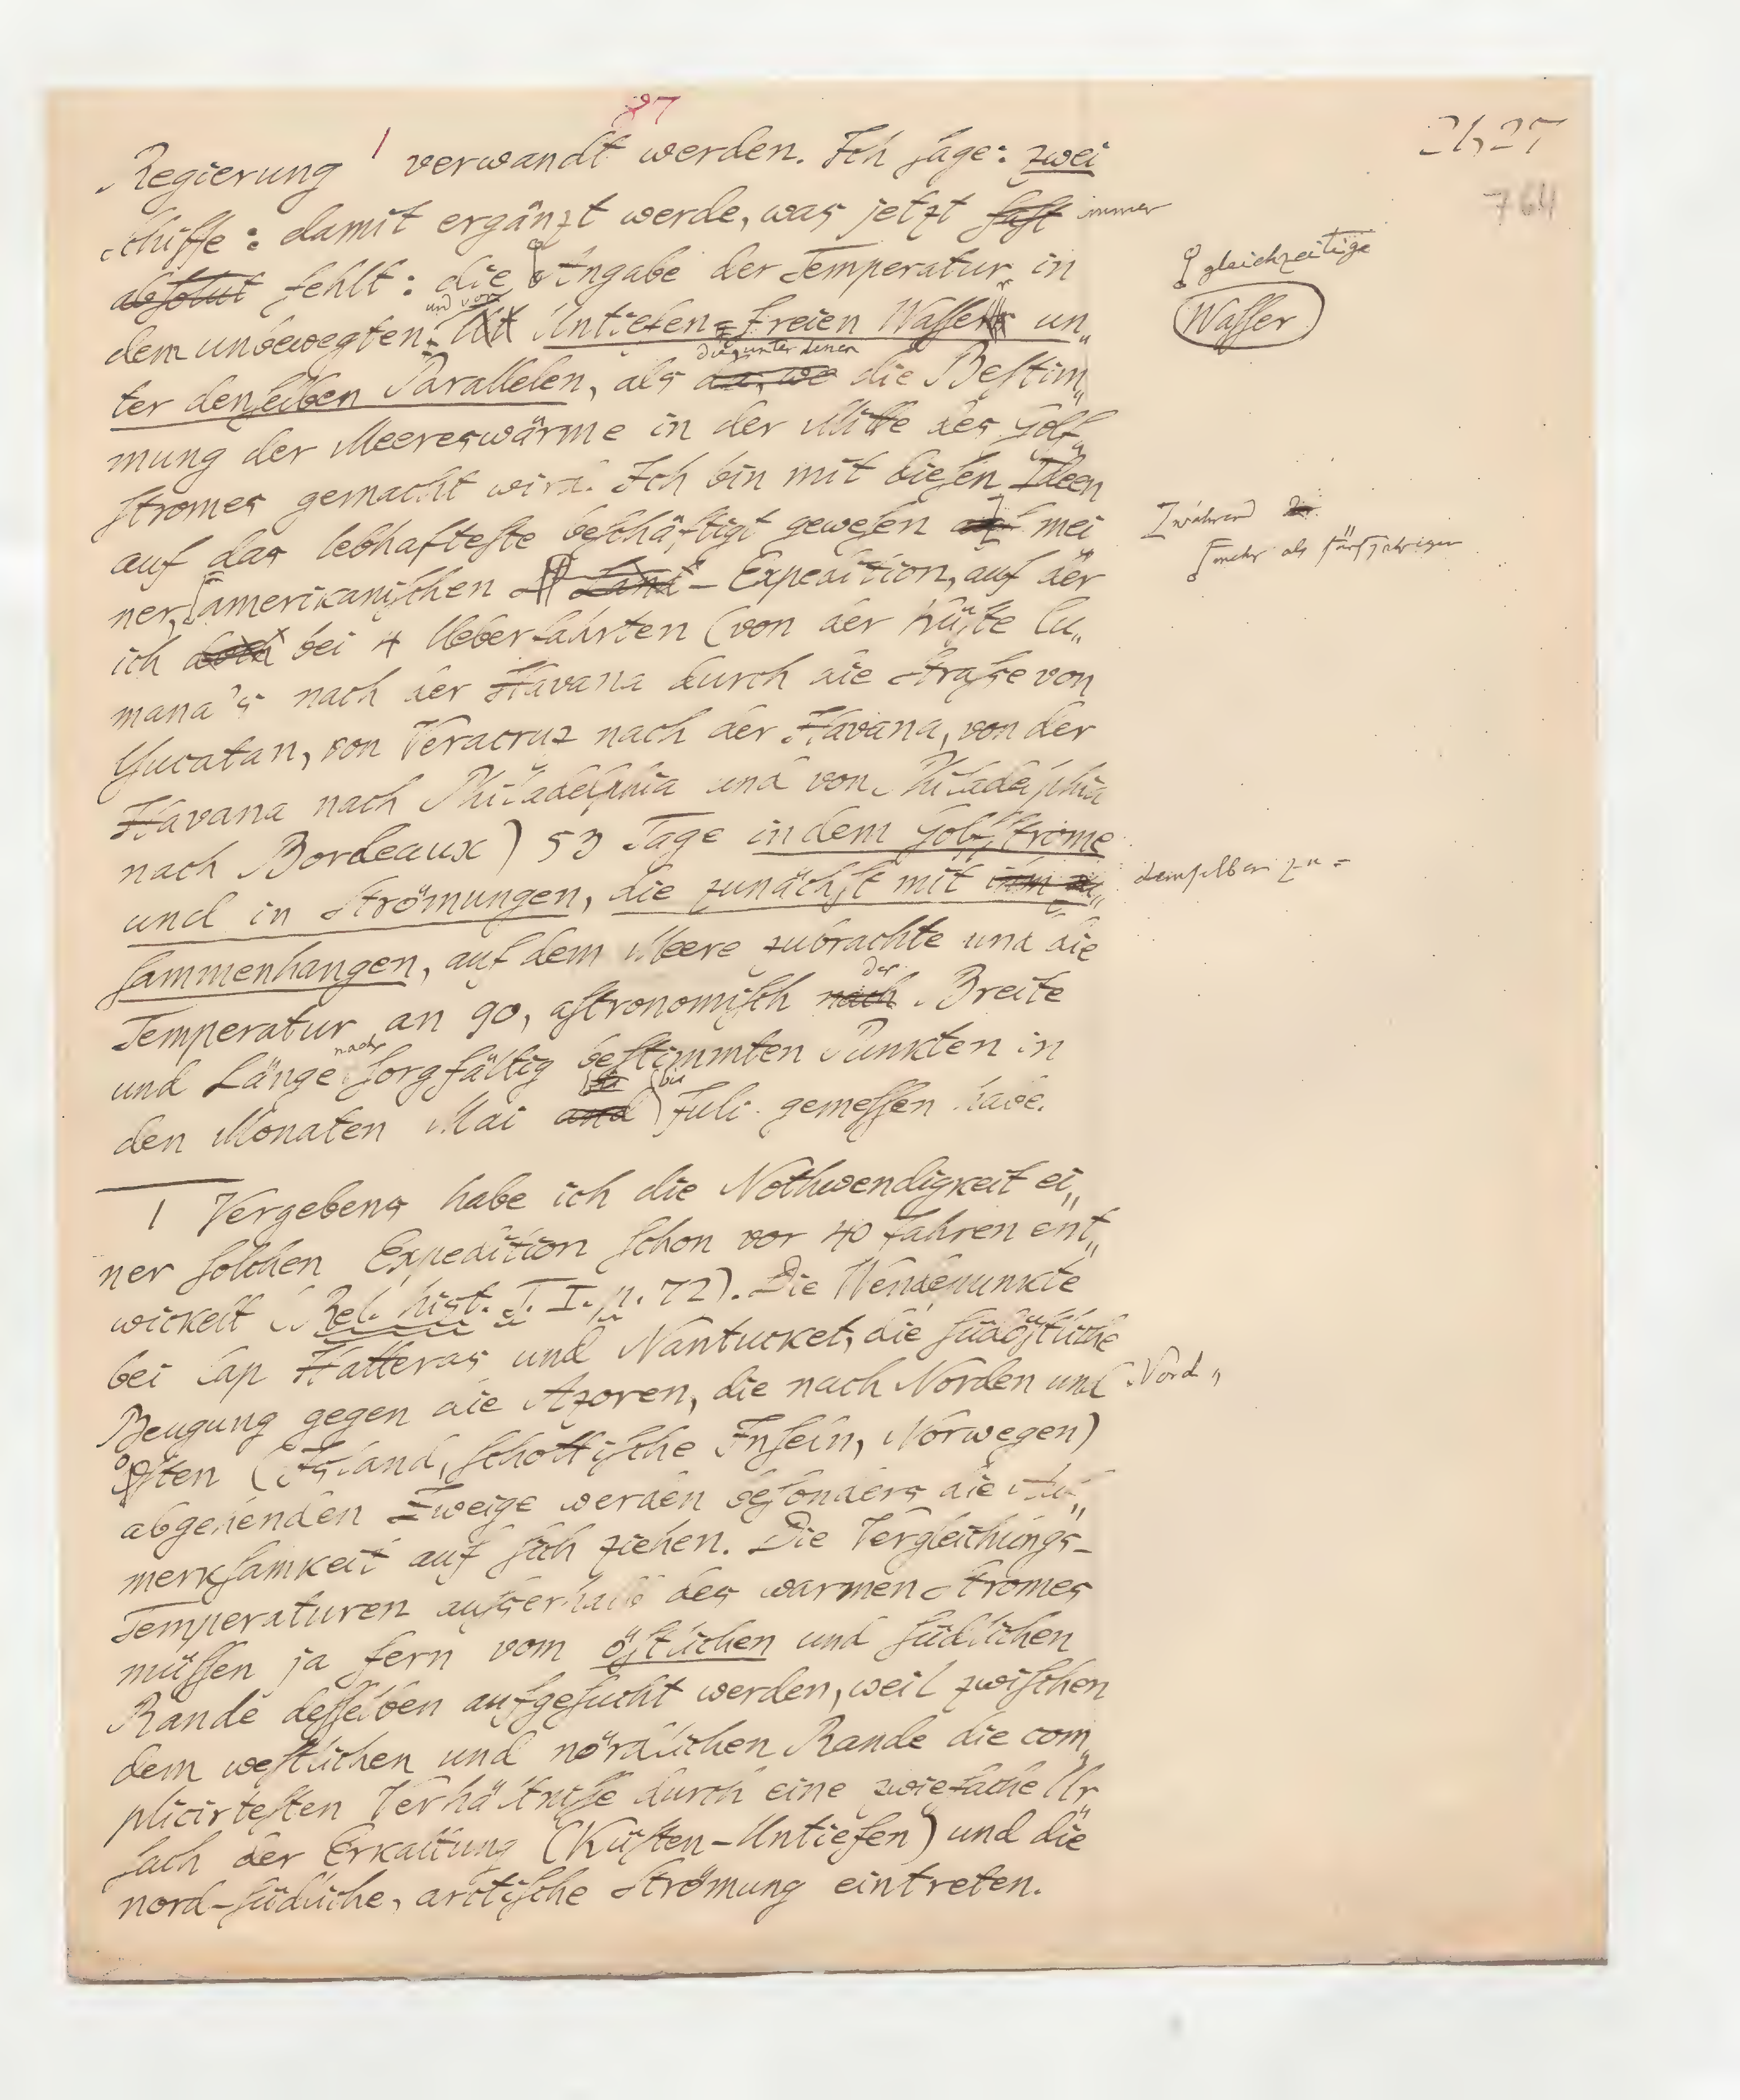 87
Regierung 1 verwandt werden. Ich sage: zwei
Schiffe: damit ergänzt werde, was jetzt fast immer
absolut fehlt: die Angabe der Temperatur in
gleichzeitige
und von
dem unbewegten, Untiefen-freien Wasser un„
Wasser
die unter denen
ter denselben Parallelen, als da, wo die Bestim„
mung der Meereswärme in der Mitte des Golf„
stromes gemacht wird. Ich bin mit diesen Ideen
auf das lebhafteste beschäftigt gewesen auf mei
während
ner, amerikanischen Land-Expedition, auf der
mehr als fünfjährigen
ich doch bei 4 Ueberfahrten (von der Küste Cu„
mana's nach der Havana durch die Straße von
Yucatan, von Veracruz nach der Havana, von der
Havana nach Philadelphia und von Philadelphia
nach Bordeaux) 53 Tage in dem Golfstrome
und in Strömungen, die zunächst mit ihm zu„ demselben zu=
sammenhangen, auf dem Meere zubrachte und die
der
Temperatur an 90, astronomisch nach Breite
nach
und Länge sorgfältig bestimmten Punkten in
bis
den Monaten Mai und Juli gemessen habe.
1 Vergebens habe ich die Nothwendigkeit ei„
ner solchen Expedition schon vor 40 Jahren ent„
wickelt (Rel. hist. T. I. p. 72). Die Wendepunkte
bei Cap Hatteras und Nantucket, die südöstliche
Beugung gegen die Azoren, die nach Norden und Nord„
Osten (Island, schottische Inseln, Norwegen)
abgehenden Zweige werden besonders die Auf„
merksamkeit auf sich ziehen. Die Vergleichungs-
Temperaturen außerhalb des warmen Stromes
müssen ja fern vom östlichen und südlichen
Rande desselben aufgesucht werden, weil zwischen
dem westlichen und nördlichen Rande die com„
plicirtesten Verhältnisse durch eine zwiefache Ur„
sach der Erkaltung (Küsten-Untiefen) und die
nord-südliche, arctische Strömung eintreten.